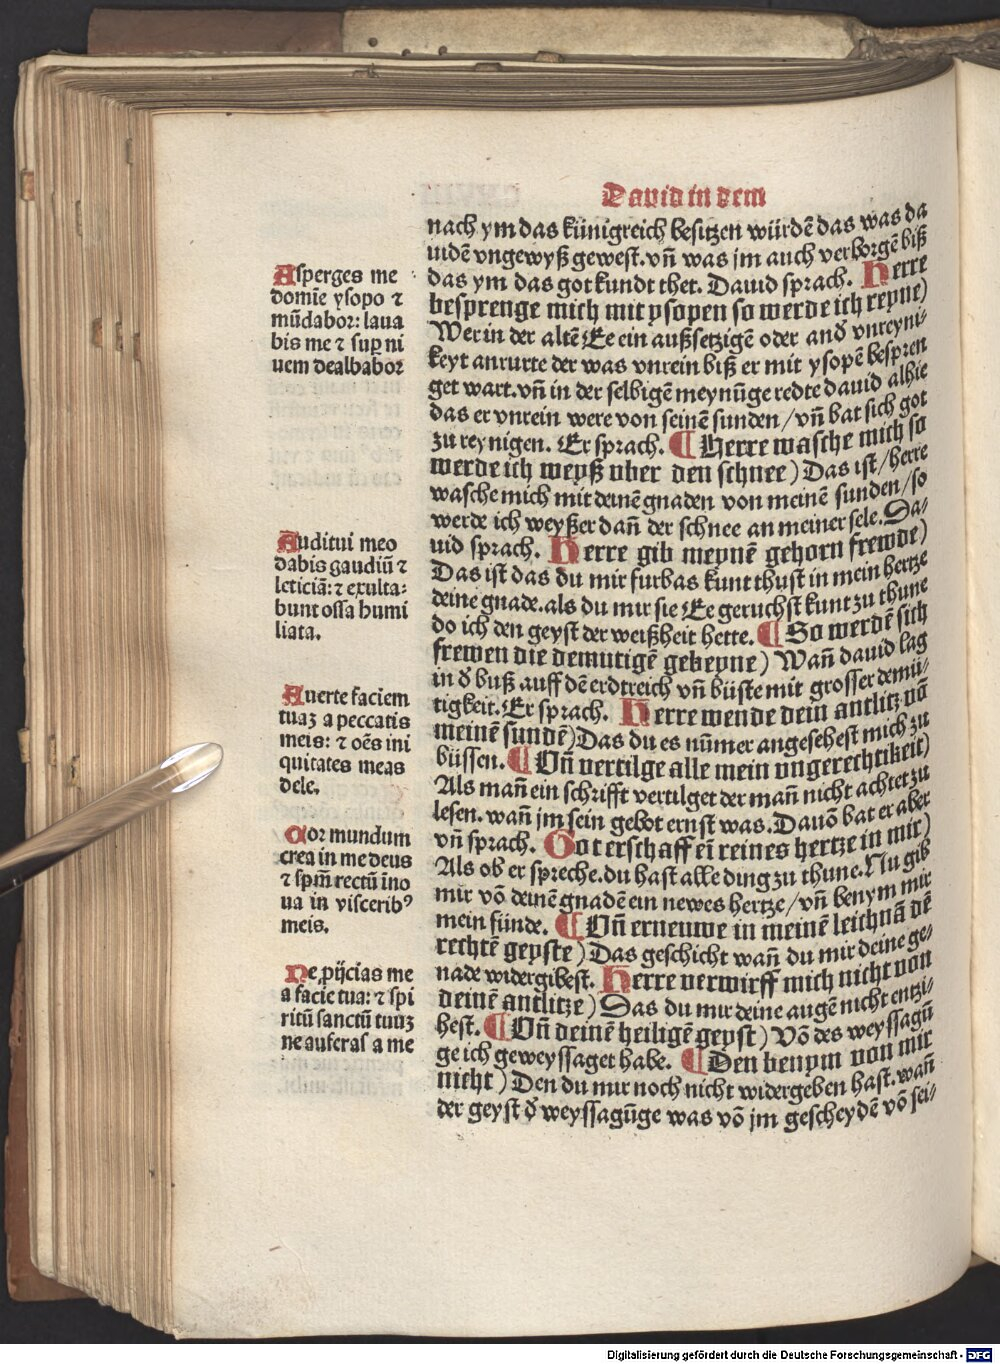 Dauid in dem
nach ym das künigreich besitzen würdē das was da
uidē vngewyß gewest. vn̄ was jm auch verborgē biß
das ym das got kundt thet. Dauid sprach. Herre
besprenge mich mit ysopen so werde ich reyne)
Wer in der altē Ee ein außsetzigē oder and̄ vnreyni-
keyt anrurte der was vnrein biß er mit ysopē bespren
get wart. vn̄ in der selbigē meynūge redte dauid alhie
das er vnrein were von seinē sunden / vn̄ bat sich got
zu reynigen. Er sprach. ¶ Herre wasche mich so
werde ich weyß vber den schnee) Das ist / herre
wasche mich mit deinē gnaden von meinē sunden / so
werde ich weyßer dan̄ der schnee an meiner sele. Da-
uid sprach. Herre gib meynē gehorn frewde)
Das ist das du mir furbas kunt thust in mein hertze
deine gnade. als du mir sie Ee geruchst kunt zu thune
do ich den geyst der weißheit hette. ¶ So werdē sich
frewen die demutigē gebeyne) Wan̄ dauid lag
in d̄ buß auff dē erdtreich vn̄ büste mit grosser demü-
tigkeit. Er sprach. Herre wende dein antlitz vō
meinē sundē) Das du es nūmer angesehest mich zu
büssen. ¶ Vn̄ vertilge alle mein vngerechtikeit)
Als man̄ ein schrifft vertilget der man̄ nicht achtet zu
lesen. wan̄ jm sein gebot ernst was. Dauō bat er aber
vn̄ sprach. Got erschaff eī reines hertze in mir)
Als ob er spreche. du hast alle ding zu thune. Nu gib
mir vō deinē gnadē ein newes hertze / vn̄ benym mir
mein sünde. ¶ Vn̄ erneuwe in meinē leichnā dē
rechtē geyste) Das geschicht wan̄ du mir deine ge-
nade widergibest. Herre verwirff mich nicht von
deinē antlitze) Das du mir deine augē nicht entzi-
hest. ¶ Vn̄ deinē heiligē geyst) Vō des weyssagū
ge ich geweyssaget habe. ¶ Den benym von mir
nicht) Den du mir noch nicht widergeben hast. wan̄
der geyst d̄ weyssagūge was vō jm gescheydē vō sei-
Asperges me
domīe ysopo ⁊
mūdabor: laua
bis me ⁊ suꝑ ni
uem dealbabor
Auditui meo
dabis gaudiū ⁊
leticiā: ⁊ exulta-
bunt ossa humi
liata.
Auerte faciem
tuaꝫ a peccatis
meis: ⁊ oēs ini
quitates meas
dele.
Cor mundum
crea in me deus
⁊ spm̄ rectū īno
ua in visceribꝰ
meis.
Ne ꝓijcias me
a facie tua: ⁊ spi
ritū sanctū tuuꝫ
ne auferas a me
Digitalisierung gefördert durch die Deutsche Forschungsgemeinschaft - DFG